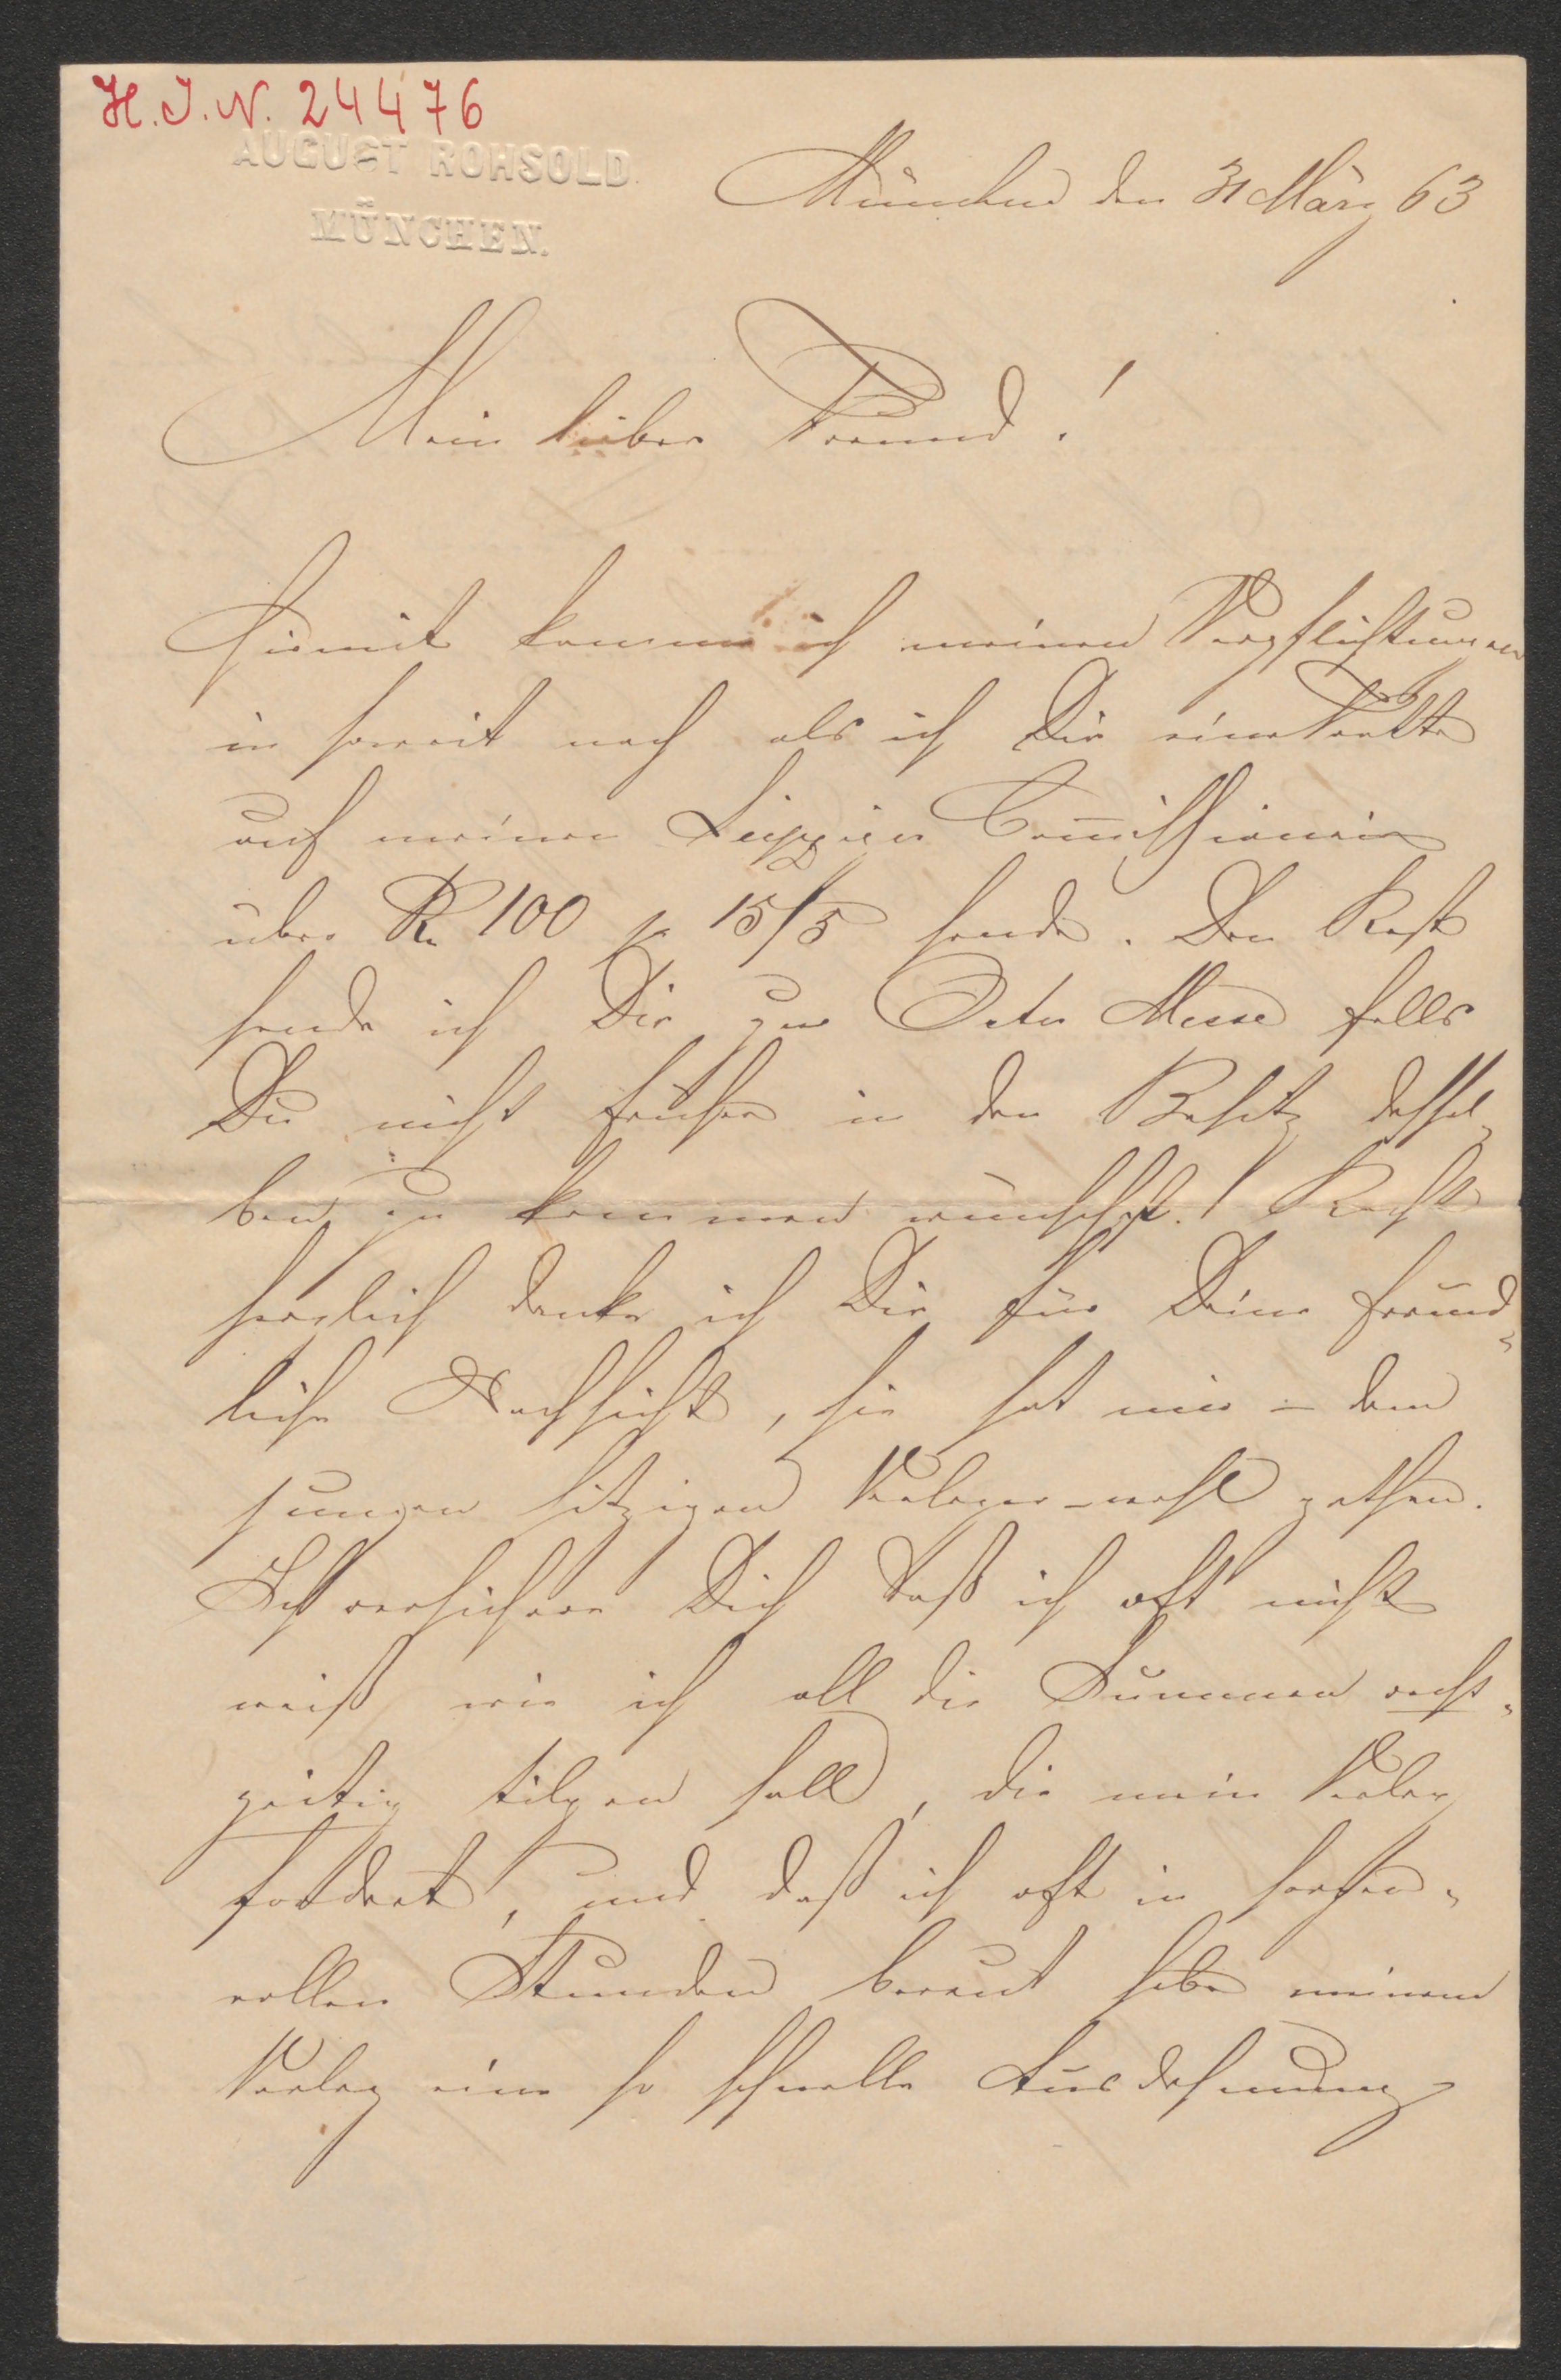 H. I. N. 24476
AUGUST ROHSOLD
MÜNCHEN.
München den 31 März 63
Mein lieber Freund!
Hiemit komme ich meinen Verpflichtungen
in soweit nach als ich Dir eine Tratte
auf meinen Leipziger Com̅issionair
über Rh 100 p 15/5 sende. Den Rest
sende ich Dir zur Oster Messe falls
Du nicht früher in den Besitz dessel-
ben zu kommen wünschest! Recht
herzlich danke ich Dir für Deine freund-
liche Nachsicht, sie hat mir – dem
jungen hitzigen Verleger – wohl gethan.
Ich versichere Dich daß ich oft nicht
weiß wie ich all die Summen recht-
zeitig tilgen soll, die mein Verlag
fordert, und daß ich oft in sorgen-
vollen Stunden bereut habe meinem
Verlag eine so schnelle Ausdehnung